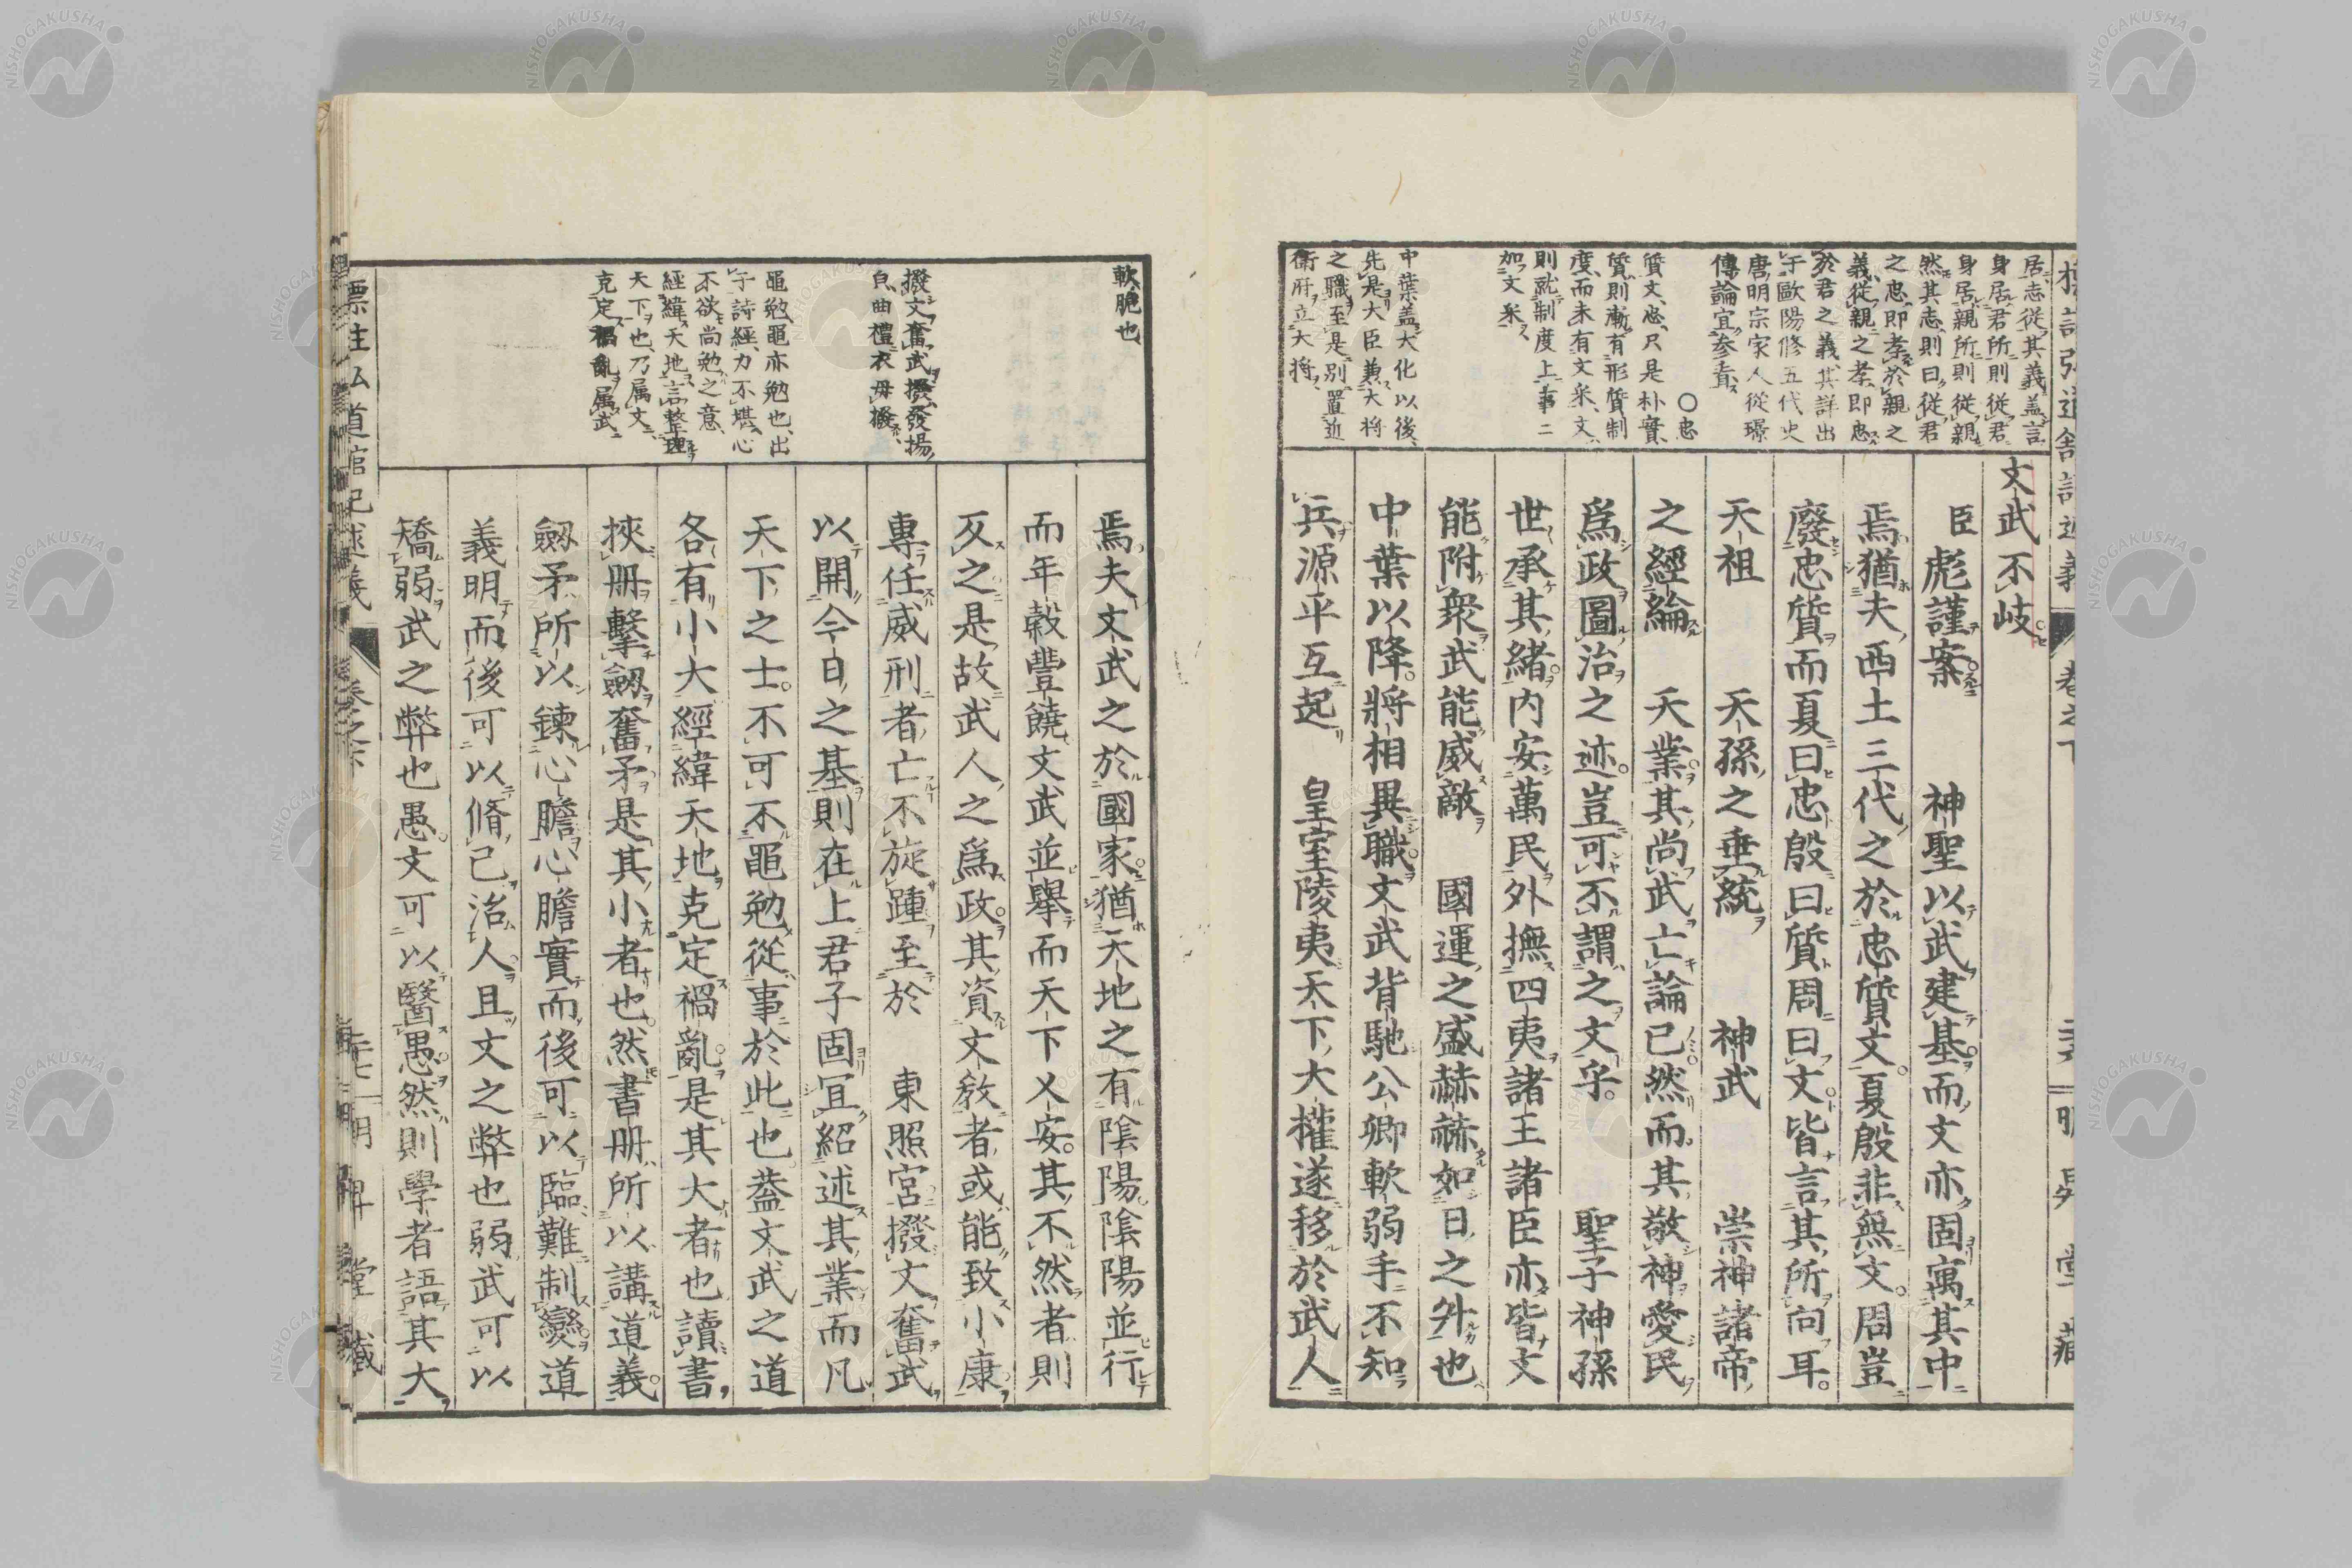 居、志從其義、蓋言
身居君所、則從君、
身居親所、則從親、
然其志、則曰、從君
之忠、即孝於親之
義、從親之孝、即忠
於君之義、其詳出
于歐陽修五代史
唐明宗家人從璟
傳論、宜參看、
○忠
質文、忠、只是朴實、
質、則漸有形質制
度、而未有文采、文、
則就制度上事二
加文采、
中葉蓋大化以後、
先是大臣兼大將
之職、至是別置近
衛府、立大將、
文武不岐
臣彪謹案 神聖以武建基而文亦固寓其中
焉猶夫西土三代之於忠質文夏殷非無文周豈
廢忠質而夏曰忠殷曰質周曰文皆言其所向耳
天祖 天孫之垂統 神武 崇神諸帝
之經綸 天業其尚武亡論已然而其敬神愛民
爲政圖治之迹豈可不謂之文乎 聖子神孫
世承其緒內安萬民外撫四夷諸王諸臣亦皆文
能附衆武能威敵 國運之盛赫赫如日之升也
中葉以降將相異職文武背馳公卿軟弱手不知
兵源平互起 皇室陵夷天下大權遂移於武人
軟、脆也、
撥文奮武、撥、發揚
皃、曲禮衣毋撥、
黽勉、黽亦勉也、出
于詩經、力不堪、心
不欲尚勉之意、
經緯天地、言整理
天下也、乃属文、
克定禍亂、属武、
焉夫文武之於國家猶天地之有陰陽陰陽並行
而年穀豐饒文武並擧而天下乂安其不然者則
反之是故武人之爲政其資文敎者或能致小康
專任威刑者亡不旋踵至於 東照宮撥文奮武
以開今日之基則在上君子固宜紹述其業而凡
天下之士不可不黽勉從事於此也蓋文武之道
各有小大經緯天地克定禍亂是其大者也讀書
挾册擊劔奮矛是其小者也然書册所以講道義
劔矛所以鍊心膽心膽實而後可以臨難制變道
義明而後可以脩己治人且文之弊也弱武可以
矯弱武之弊也愚文可以醫愚然則學者語其大